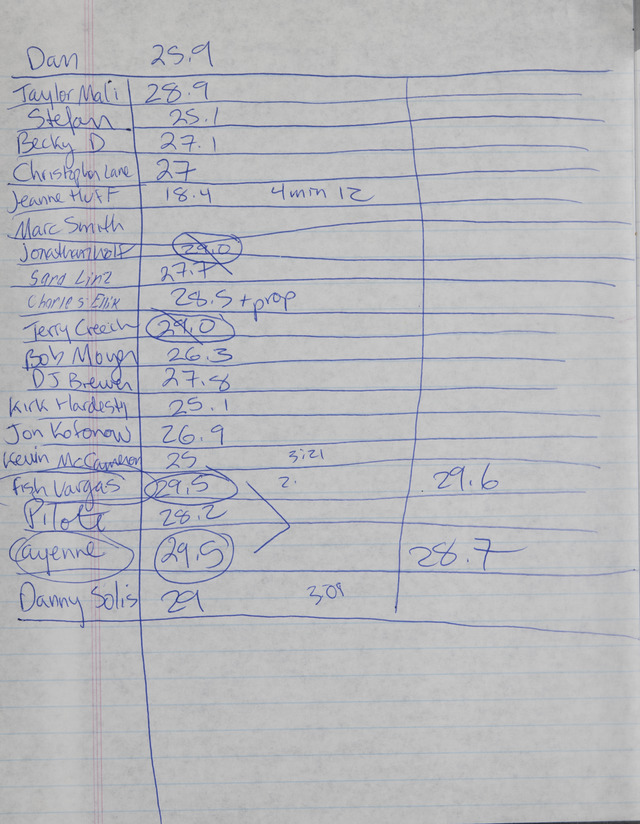 Dan 25.9
Taylor Mali 28.9
Stefan 25.1
Becky D 27.1
Christopher Lane 27
Jeanne Huff 18.4 4 min 12
Marc Smith
Jonathan Wolf 29.0
Sara Linz 27.7
Charles Ellik 28.5 + prop
Terry Creech 29.0
Bob Moyer 26.3
DJ Brewer 27.8
Kirk Hardesty 25.1
Jon Kofonow 26.9
Kevin McCameron 25 3:21
Fish Vargas 29.5 2. 29.6
Pilote 28.2
Cayenne 29.5 28.7
Danny Solis 29 3:09